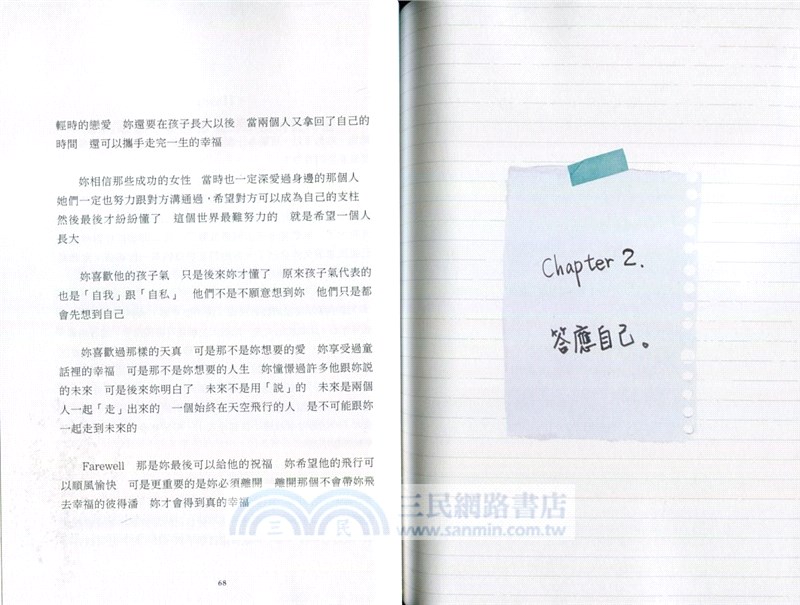 輕時的戀愛　妳還要在孩子長大以後　當兩個人又拿回了自己的
時間　還可以攜手走完一生的幸福
妳相信那些成功的女性　當時也一定深愛過身邊的那個人
她們一定也努力跟對方溝通過，希望對方可以成為自己的支柱
然後最後才紛紛懂了　這個世界最難努力的　就是希望一個人
長大
妳喜歡他的孩子氣　只是後來妳才懂了　原來孩子氣代表的
也是「自我」跟「自私」　他們不是不願意想到妳　他們只是都
會先想到自己
妳喜歡過那樣的天真　可是那不是妳想要的愛　妳享受過童
話裡的幸福　可是那不是妳想要的人生　妳憧憬過許多他跟妳說
的未來　可是後來妳明白了　未來不是用「說」的　未來是兩個
人一起「走」出來的　一個始終在天空飛行的人　是不可能跟妳
一起走到未來的
Farewell　那是妳最後可以給他的祝福　妳希望他的飛行可
以順風愉快　可是更重要的是妳必須離開　離開那個不會帶妳飛
去幸福的彼得潘　妳才會得到真的幸福
68
Chapter 2.
答應自己。
三民網路書店
三 民
www.sanmin.com.tw